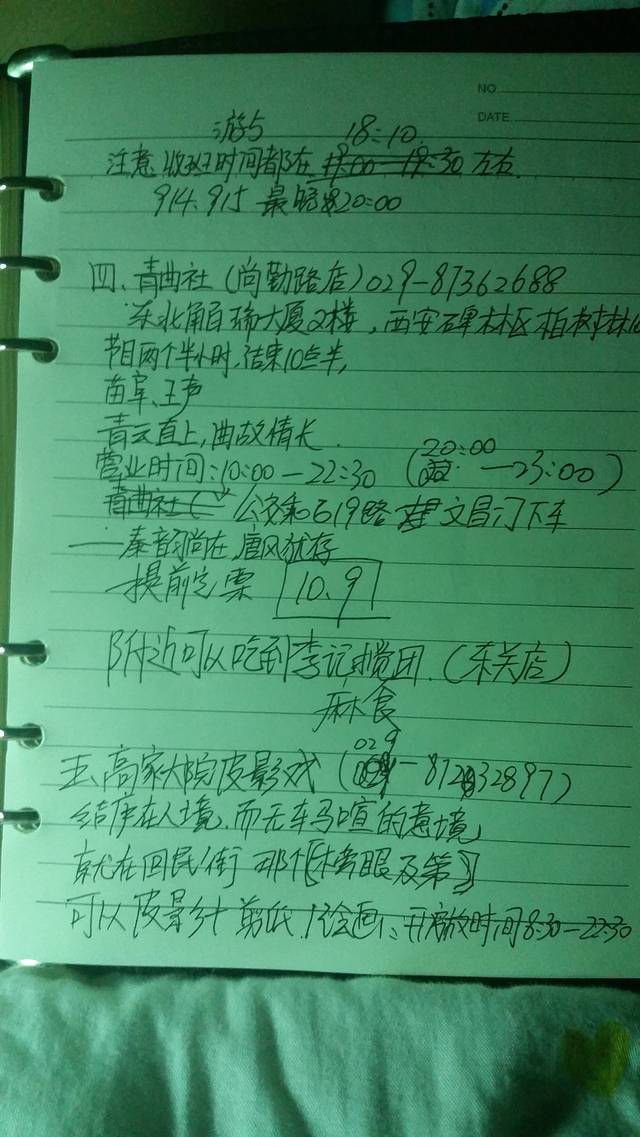 NO.
DATE.
游5 18:10
注意.收班时间都在 19:00—19:30 左右.
914.915 最晚 20:00
四、青曲社(尚勤路店)029-87362688
东北角百瑞大厦2楼,西安碑林区柏树林
节目两个半小时,结束10点半,
苗阜、王声
青云直上,曲故情长.
营业时间:10:00—22:30 (20:00 —23:00)
青曲社( 公交乘619路 文昌门下车
——秦音尚在,唐风犹存
提前定票 10.9
附近可以吃到李记搅团.(东关店)
麻食
五、高家大院皮影戏(029-87232897)
结庐在人境,而无车马喧的意境,
就在回民街 那个【榜眼及第】
可以皮影, 剪纸,绘画、开放时间8:30—22:30